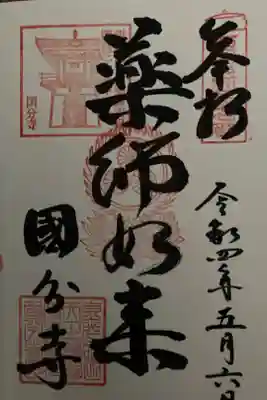 奉拝
令和四年五月六日
薬師如来
國分寺
国分寺